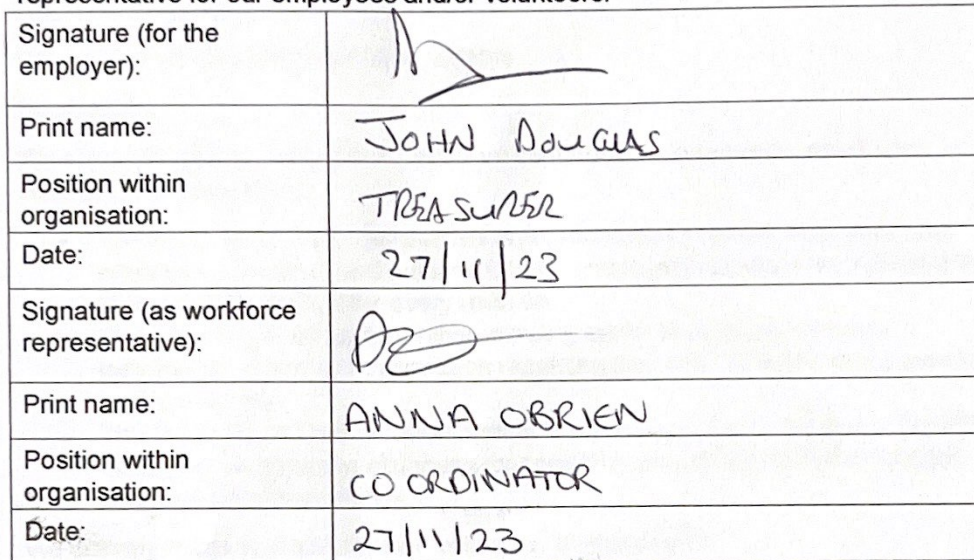 representative for our employees and/or volunteers.
Signature (for the
employer):
Print name:
JOHN DOUGLAS
Position within
organisation:
TREASURER
Date:
27/11/23
Signature (as workforce
representative):
Print name:
ANNA OBRIEN
Position within
organisation:
CO ORDINATOR
Date:
27/11/23